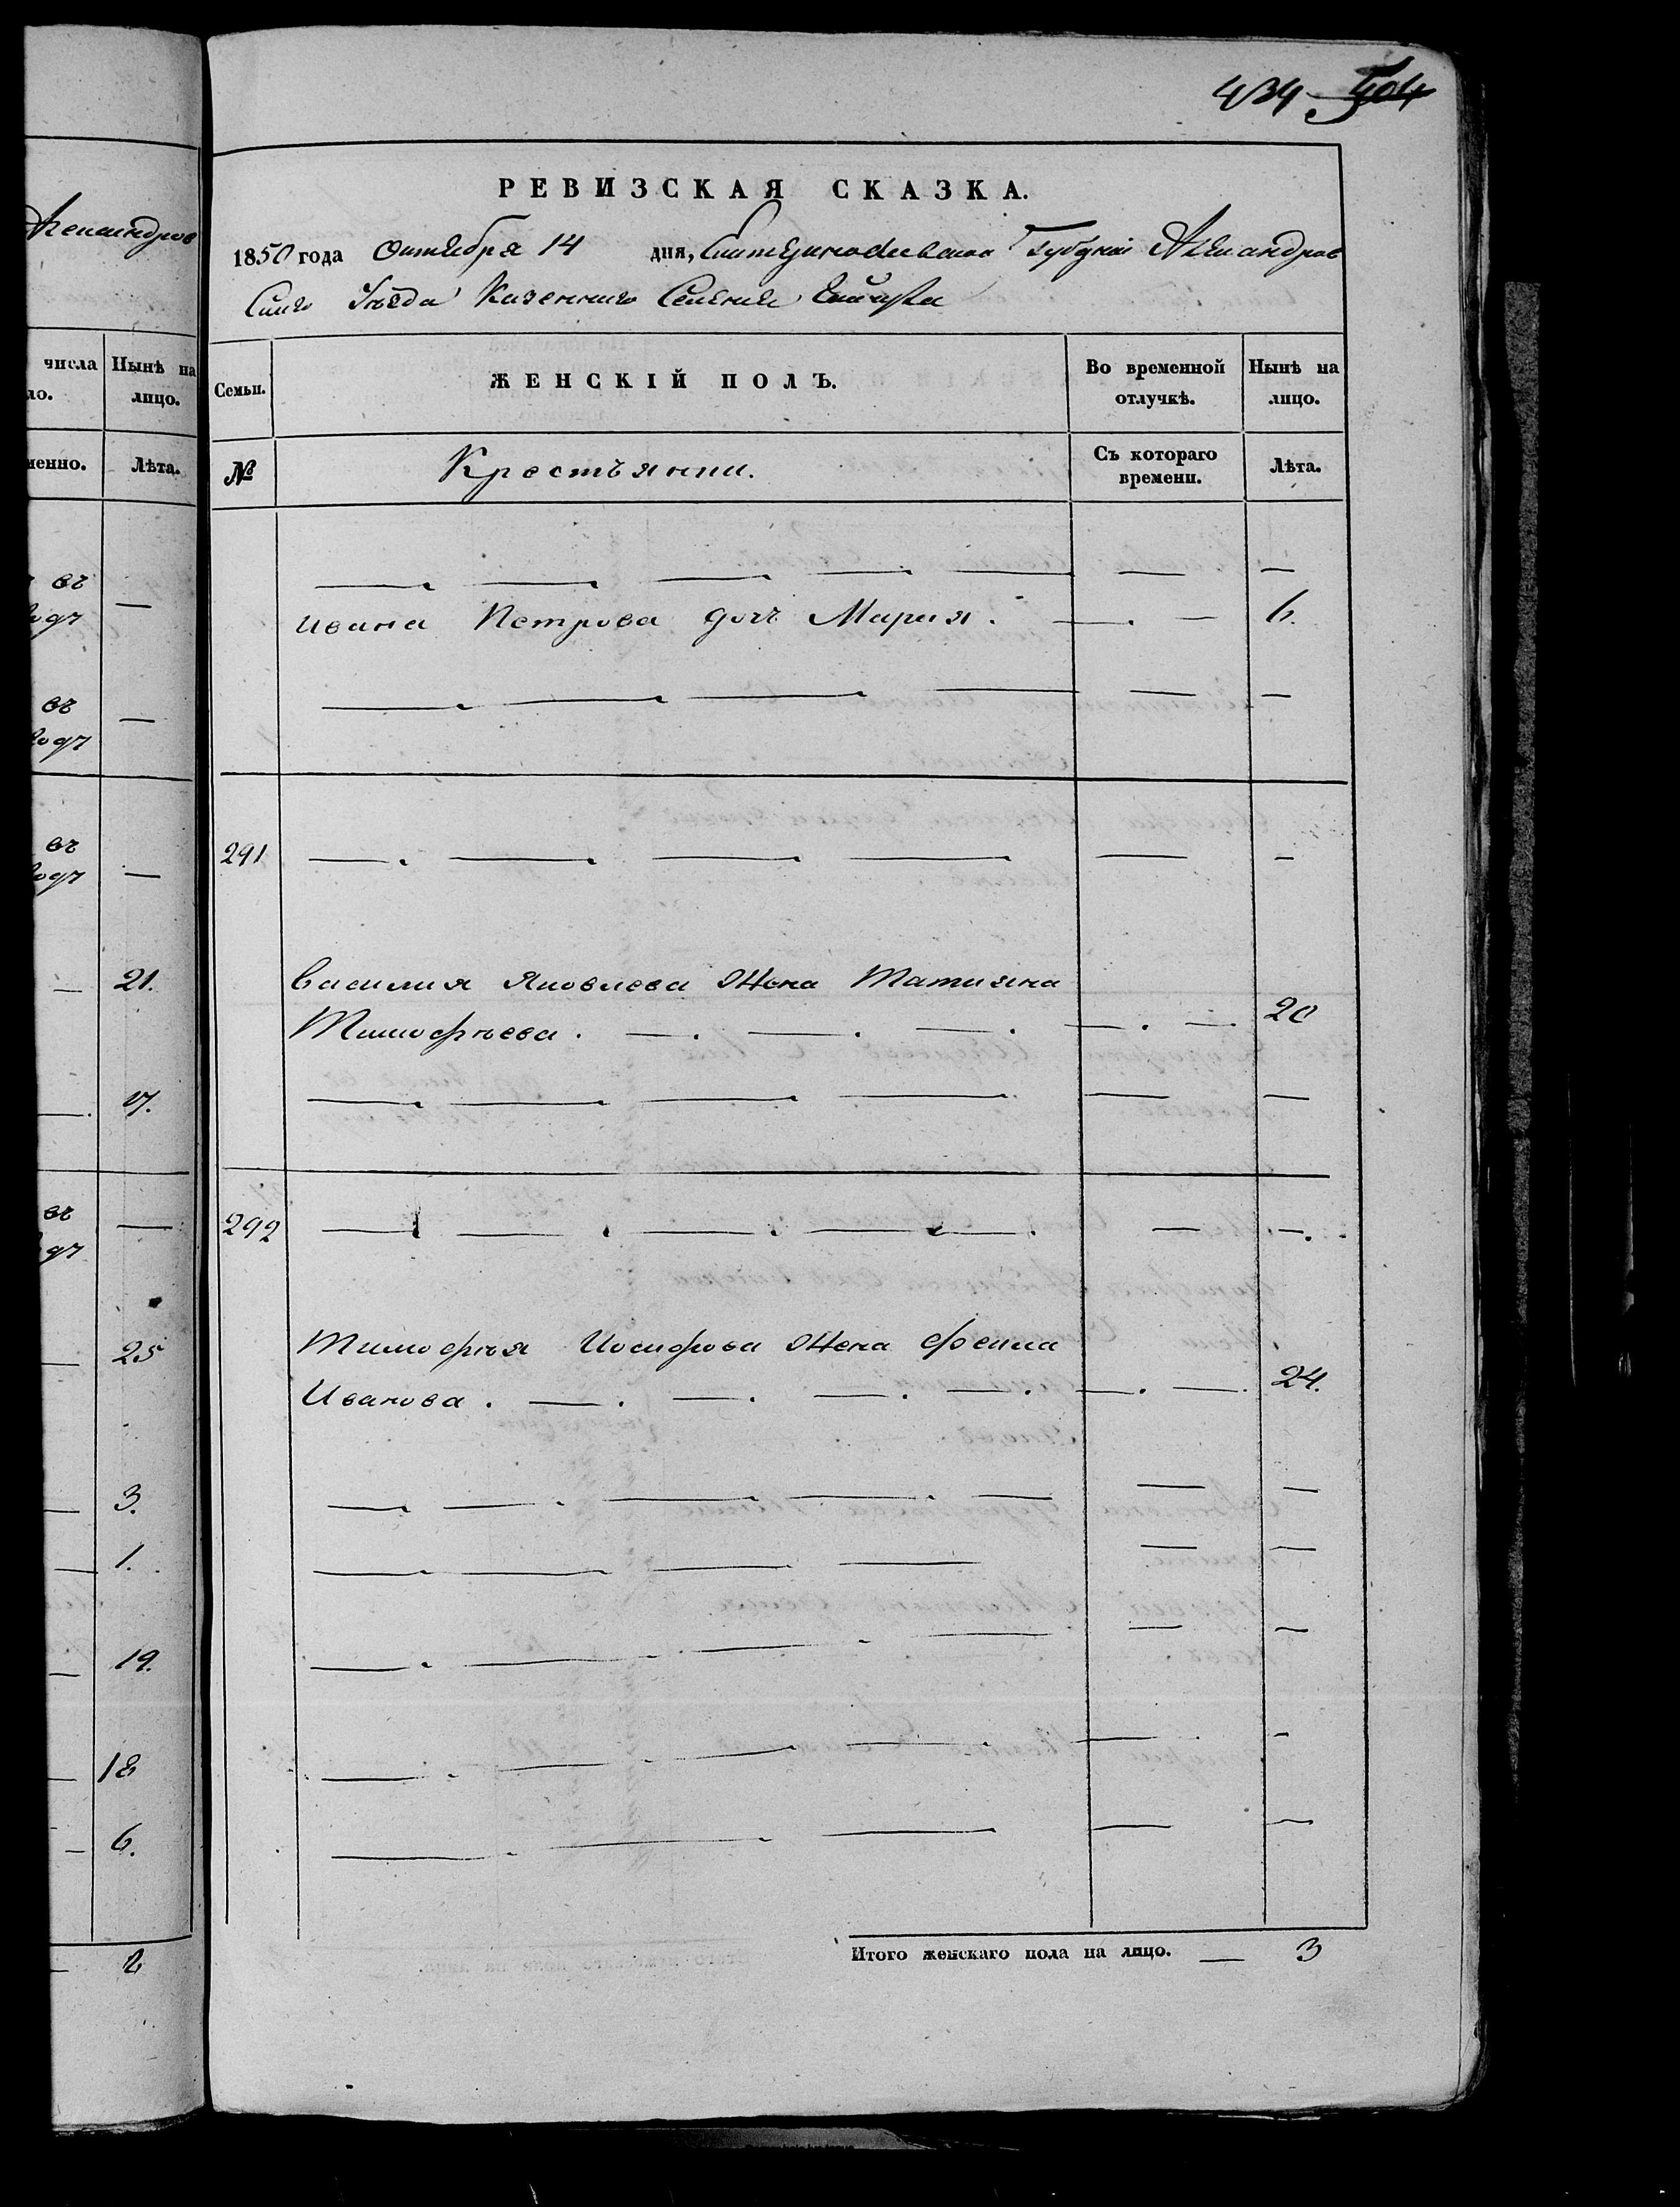 Александров
числа Нынѣ на
ло. лицо.
менно. Лѣта.
въ —
годъ
въ —
годъ
въ
годъ —
— 21.
— 17.
въ —
годъ
— 25
— 3.
— 1.
— 19.
— 18
— 6.
— 2
434 504
РЕВИЗСКАЯ СКАЗКА.
1850 года Октября 14 дня, Екатеринославской Губерніи Александров
скаго Уѣзда Казеннаго Селенія
Семьи. ЖЕНСКІЙ ПОЛЪ. Во временной отлучкѣ. Нынѣ на лицо.
№ Крестьянки. Съ котораго времени. Лѣта.
— — — — — — —
Ивана Петрова дочь Мария. — . — 6.
— — — — — —
291 — . — — — — —
Василия Яковлева Жена Татияна
Тимофѣева . — . — . — . — . — . 20
— — — — — —
292 — — — — — —.
Тимофѣя Иосифова Жена Феkла
Иванова . — . — . — . — . — . — . 24.
— — — — — — —
— — — — — —
— — — — — —
— — — — — —
— — — — —
Итого женскаго пола на лицо. — 3